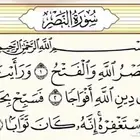 سُورَةُ النَّصْرِ
بِسْمِ اللَّهِ الرَّحْمَٰنِ الرَّحِيمِ
صْرُ اللَّهِ وَالْفَتْحُ ١ وَرَأَيْتَ
دِينِ اللَّهِ أَفْوَاجًا ٢ فَسَبِّحْ بِحَ
تَغْفِرْهُ إِنَّهُ كَانَ تَوَّابًا